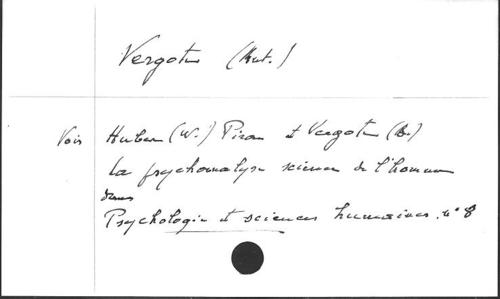 Vergote (Ant.)
Voir Huber (W.) Piron et Vergote (A.)
La psychanalyse science de l'homme
dans
Psychologie et sciences humaines. n° 8